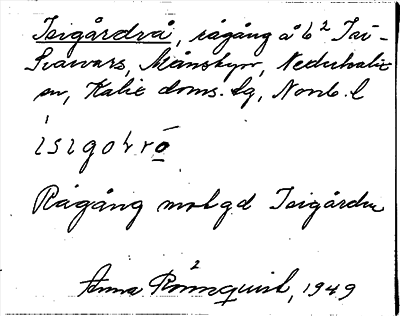 Isigårdrå, rågång å b² Isi-
Svavars, Månskyn, Nederkalix
sn, Kalix doms. sg, Norrb. l
isigo rō
Rågång mot gd Isigården
Anna Rönnquist, 1949